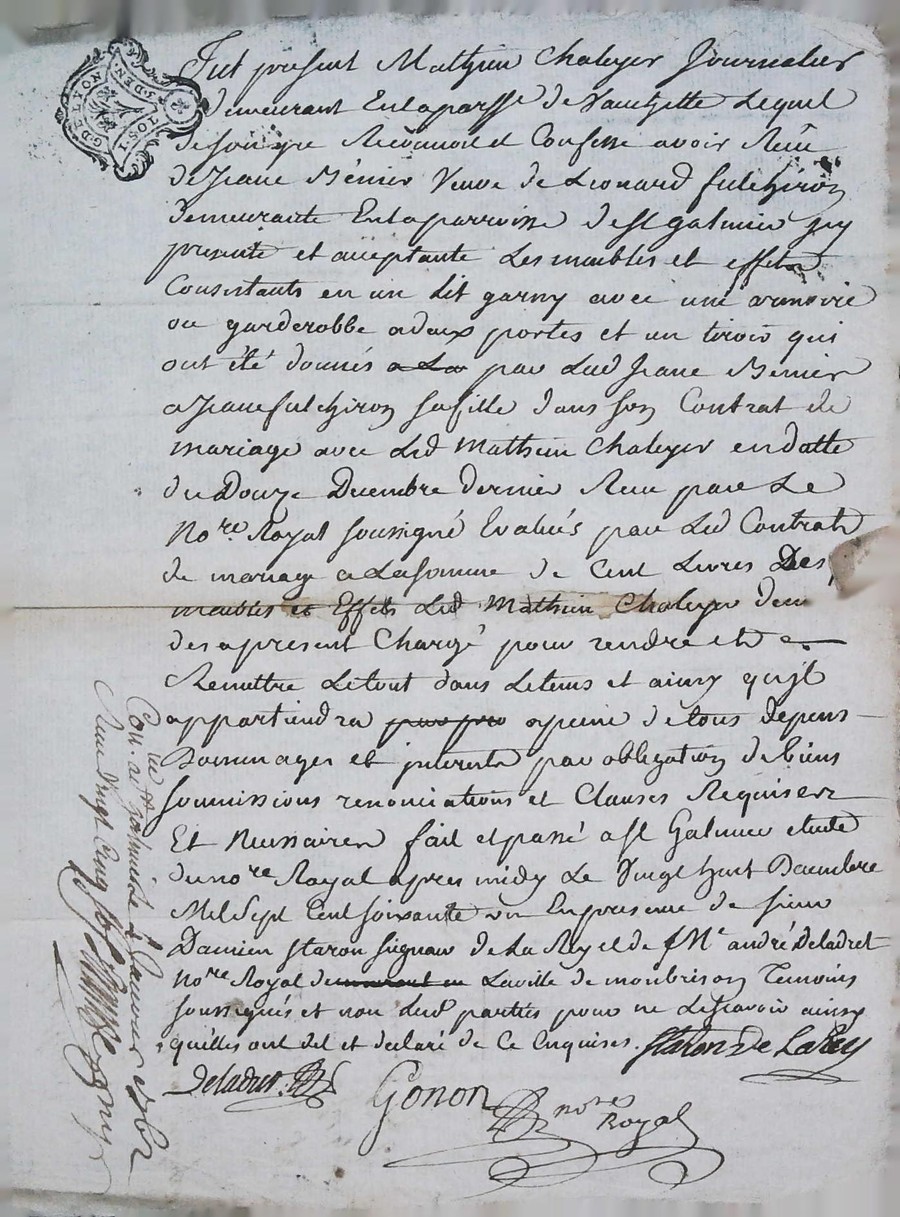 G. DE LYON
Fut present Mathieu Chaleyer Journalier
demeurant En la parsse de Lequel
de son gre Reconnoit et Confesse avoir Reçu
de Jeane Bénier Veuve de Leonard fulchiron
demeurante En la parroisse de st galmier jcy
presente et acceptante Les meubles et effets
Consistants en un lit garny avec une armoire
ou garderobbe a deux portes et un tiroir qui
ont été donnés a La par Lad Jeane Benier
a Jeane fulchiron sa fille dans son Contrat de
mariage avec Led Mathieu Chaleyer en datte
du Douze Decembre dernier Reçu par Le
Nore Royal soussigné Evalués par Led Contrat
de mariage a La somme de Cent Livres Des
meubles et Effets Led Mathieu Chaleyer
des apresent Chargé pour rendre et
Remettre Le tout dans Le tems et ainsy qu'jl
appartiendra a peine de tous depens
Dommages et jnterests par obligation de biens
soumissions renonciations et Clauses Requises
Et Necessaires fait et passé a st Galmier etude
du nore Royal apres midy Le Vingt huit Decembre
Mil Sept Cent soixante un En presence de sieur
Damien staron de La Rey et de Me andré Deladret
nore Royal de La ville de monbrison Temoins
soussignés et non Led parties pour ne Le scavoir ainsy
qu'elles ont dit et declaré de Ce Enquises. Staron De La Rey
Deladret Gonon nore
Royal
Con. a st Galmier Le Janvier
Reçu vingt Cinq